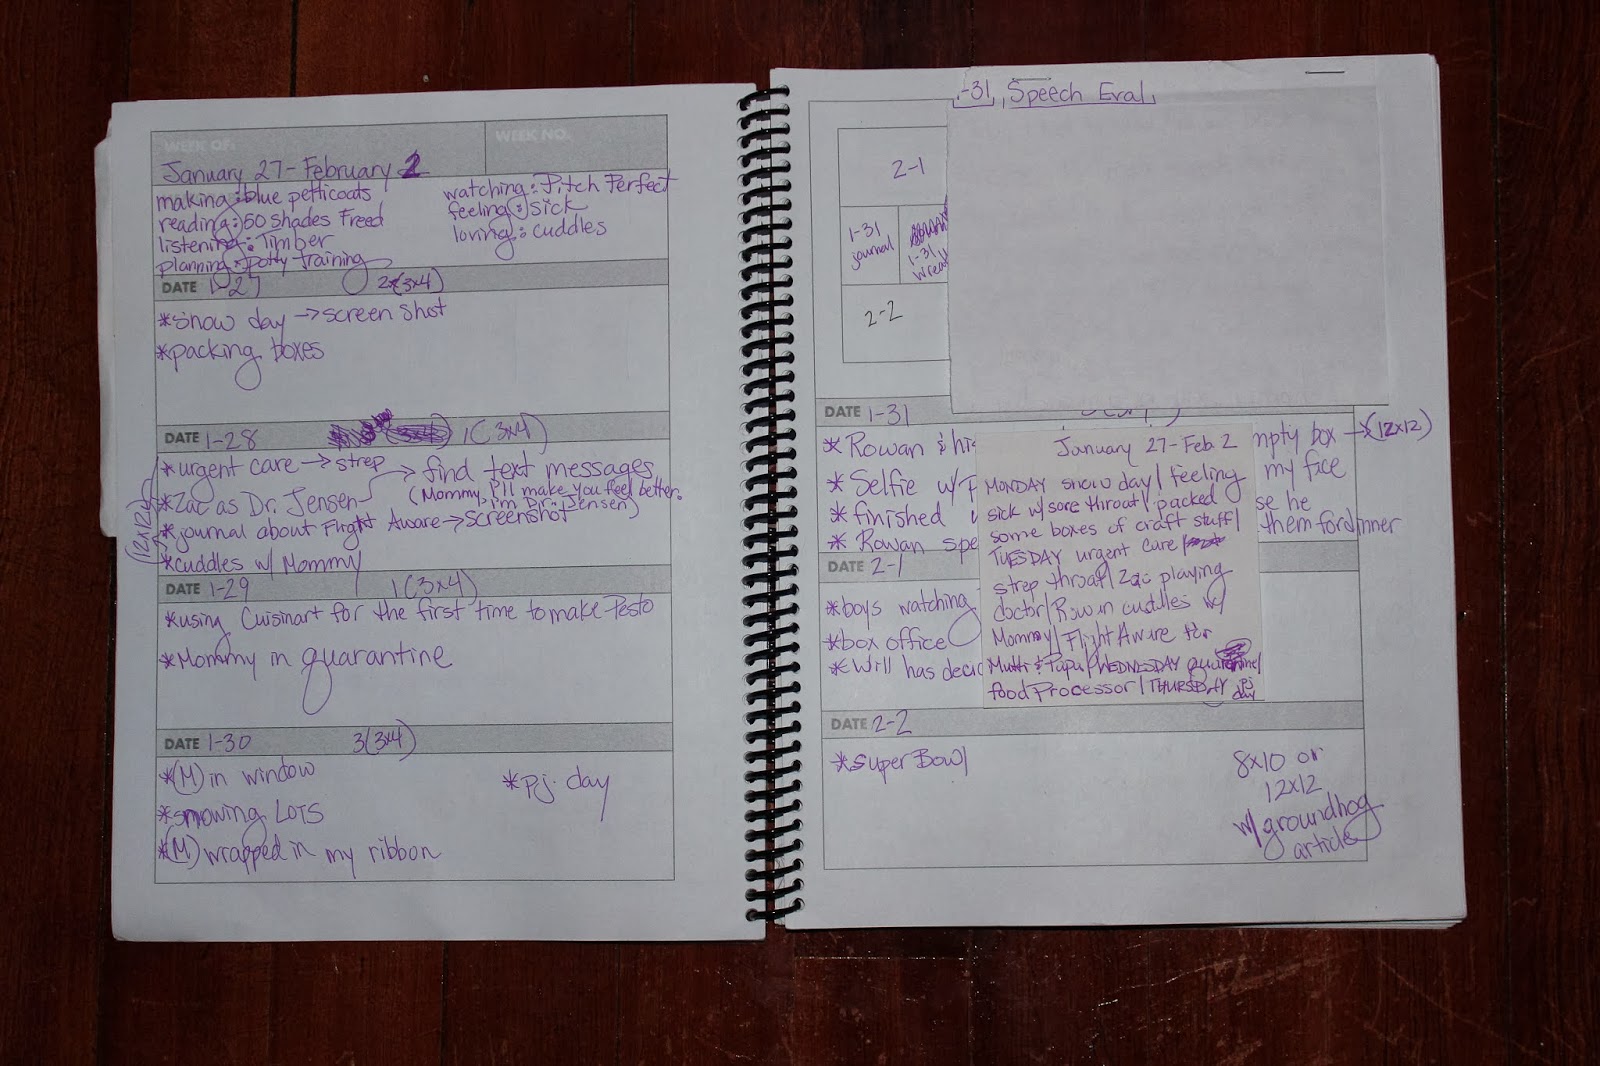 WEEK OF:
WEEK NO.
January 27 - February 2
making: blue petticoats
reading: 50 Shades Freed
listening: Timber
planning: potty training
watching: Pitch Perfect
feeling: sick
loving: cuddles
DATE 1-27 2(3x4)
*snow day → screen shot
*packing boxes
DATE 1-28 (3x4) 1(3x4)
*urgent care → strep → find text messages
*Zac as Dr. Jensen (Mommy, I'll make you feel better.
I'm Dr. Jensen)
*journal about Flight Aware → screenshot
*cuddles w/ Mommy
(12x12)
DATE 1-29 1(3x4)
*using Cuisinart for the first time to make Pesto
*Mommy in quarantine
DATE 1-30 3(3x4)
*(M) in window
*snowing LOTS
*(M) wrapped in my ribbon
*pj day
1-31 Speech Eval
2-1
1-31
journal
1-31
wreath
2-2
DATE 1-31
*Rowan & his
mpty box → (12x12)
*Selfie w/
my face
*finished
se he
*Rowan spe
them for dinner
DATE 2-1
*boys watching
*box office
*Will has deci
January 27-Feb. 2
MONDAY snow day/feeling
sick w/sore throat/packed
some boxes of craft stuff/
TUESDAY urgent care/
strep throat/Zac playing
doctor/Rowan cuddles w/
Mommy/FlightAware for
Mutti & Papa/WEDNESDAY quarantine/
food processor/THURSDAY pj
day
DATE 2-2
*super Bowl
8x10 or
12x12
w/groundhog
article